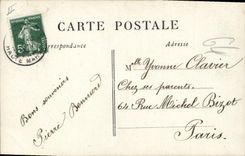 CARTE POSTALE
Correspondance
Adresse
5
HAUTE MAR
Mlle Yvonne Clavier
Chez ses parents
64 Rue Michel Bizot
Paris.
Bons souvenirs
Pierre